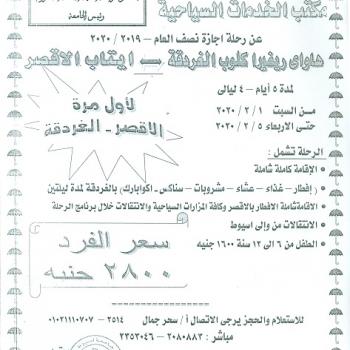 رئيس الجامعة
مكتب الخدمات السياحية
عن رحلة اجازة نصف العام - ٢٠١٩ / ٢٠٢٠
هاواى ريفيرا كلوب الغردقة — ايتاب الاقصر
لمدة ٥ أيام - ٤ ليالى
من السبت ١ / ٢ / ٢٠٢٠
حتى الاربعاء ٥ / ٢ / ٢٠٢٠
لأول مرة
الاقصر - الغردقة
الرحلة تشمل :
الإقامة كاملة شاملة
( إفطار - غذاء - عشاء - مشروبات - سناكس - اكوابارك ) بالغردقة لمدة ليلتين
الاقامة شاملة الافطار بالاقصر وكافة المزارات السياحية والانتقالات خلال برنامج الرحلة
الانتقالات من والى اسيوط
الطفل من ٦ الى ١٢ سنة ١٦٠٠ جنيه
سعر الفرد
٢٨٠٠ جنيه
للاستعلام والحجز يرجى الاتصال أ / سحر جمال ٢٥١٤ - ٠١٠٢١١١٠٧٠٧
مباشر : ٢٠٨٠٨٨٣ - ٢٣٥٣٠٤٦